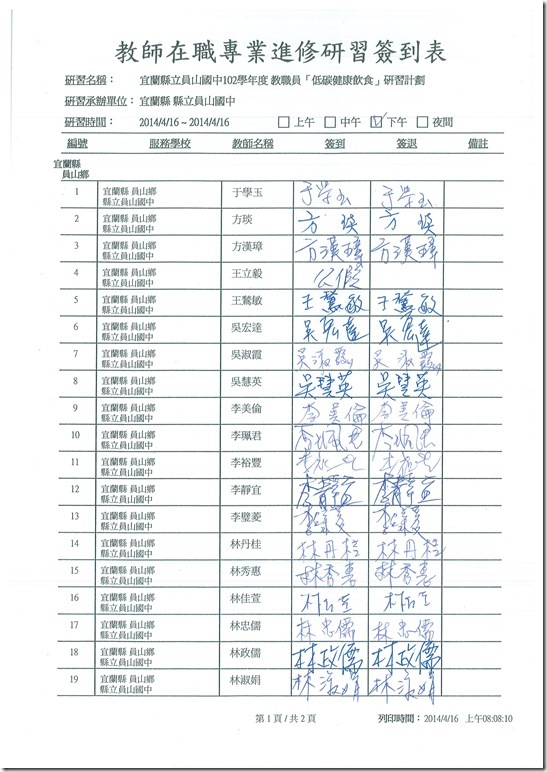 教師在職專業進修研習簽到表
研習名稱： 宜蘭縣立員山國中102學年度 教職員「低碳健康飲食」研習計劃
研習承辦單位： 宜蘭縣 縣立員山國中
研習時間： 2014/4/16 ~ 2014/4/16 □ 上午 □ 中午 ☑ 下午 □ 夜間
編號 服務學校 教師名稱 簽到 簽退 備註
宜蘭縣
員山鄉
1 宜蘭縣 員山鄉 于學玉 于學玉 于學玉
縣立員山國中
2 宜蘭縣 員山鄉 方琰 方琰 方琰
縣立員山國中
3 宜蘭縣 員山鄉 方漢璋 方漢璋 方漢璋
縣立員山國中
4 宜蘭縣 員山鄉 王立毅 公假
縣立員山國中
5 宜蘭縣 員山鄉 王鶩敏 王鶩敏 王鶩敏
縣立員山國中
6 宜蘭縣 員山鄉 吳宏達 吳宏達 吳宏達
縣立員山國中
7 宜蘭縣 員山鄉 吳淑霞 吳淑霞 吳淑霞
縣立員山國中
8 宜蘭縣 員山鄉 吳慧英 吳慧英 吳慧英
縣立員山國中
9 宜蘭縣 員山鄉 李美倫 李美倫 李美倫
縣立員山國中
10 宜蘭縣 員山鄉 李珮君 李珮君 李珮君
縣立員山國中
11 宜蘭縣 員山鄉 李裕豐
縣立員山國中
12 宜蘭縣 員山鄉 李靜宜 李靜宜 李靜宜
縣立員山國中
13 宜蘭縣 員山鄉 李璧菱 李璧菱 李璧菱
縣立員山國中
14 宜蘭縣 員山鄉 林丹桂 林丹桂 林丹桂
縣立員山國中
15 宜蘭縣 員山鄉 林秀惠 林秀惠 林秀惠
縣立員山國中
16 宜蘭縣 員山鄉 林佳萱
縣立員山國中
17 宜蘭縣 員山鄉 林忠儒 林忠儒 林忠儒
縣立員山國中
18 宜蘭縣 員山鄉 林政儒 林政儒 林政儒
縣立員山國中
19 宜蘭縣 員山鄉 林淑娟 林淑娟 林淑娟
縣立員山國中
第 1 頁 / 共 2 頁 列印時間： 2014/4/16 上午08:08:10